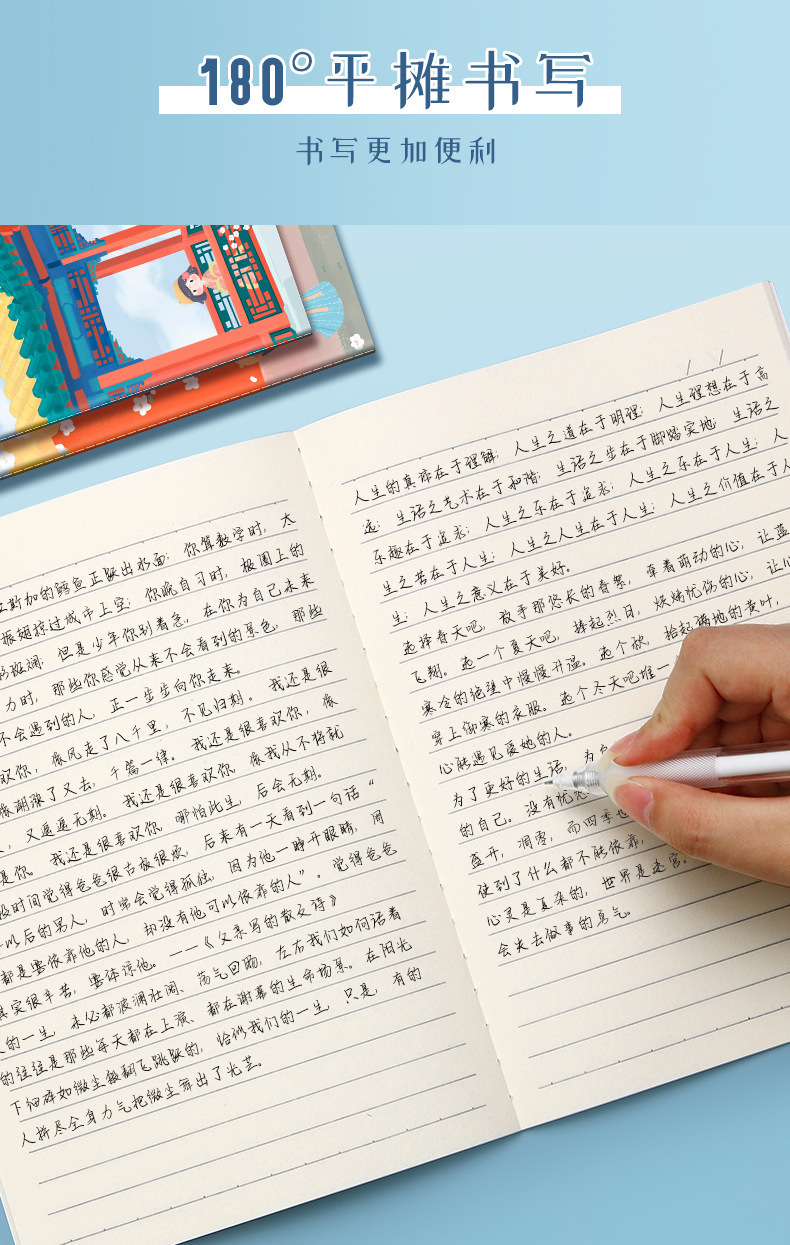 180°平摊书写
书写更加便利
斯加的鳕鱼正跃出水面；你算数学时，太
振翅掠过城市上空；你晚自习时，极圈上的
斑斓，但是少年你别着急，在你为自己未来
力时，那些你感觉从来不会看到的景色，那些
不会遇到的人，正一步步向你走来。
欢你，像风走了八千里，不见归期。我还是很
像潮涨了又去，千篇一律。我还是很喜欢你，像
，又遥遥无期。我还是很喜欢你，像我从不将就
是你。我还是很喜欢你，哪怕此生，后会无期。
段时间觉得爸爸很古板很烦，后来有一天看到一句话“
以后的男人，时常会觉得孤独，因为他一睁开眼睛，周
都是要依靠他的人，却没有他可以依靠的人”。觉得爸爸
其实很辛苦，要体谅他。——《父亲写的散文诗》
的一生，未必都波澜壮阔、荡气回肠，左右我们如何活着
的往往是那些每天都在上演、都在谢幕的生命场景。在阳光
下细碎如微尘般翻飞跳跃的，给似我们的一生，只是，有的
人拼尽全身力气把微尘舞出了光芒。
人生的真谛在于理解；人生之道在于明理；人生理想在于高
远；生活之艺术在于和谐；生活之步在于脚踏实地；生活之
乐趣在于追求；人生之乐在于追求；人生之乐在于人生；人
生之苦在于人生；人生之人生在于人生；人生之价值在于人
生；人生之意义在于美好。
选择春天吧，放手那悠长的香祭，牵着萌动的心，让蓝
飞翔。选一个夏天吧，捧起烈日，烘烤忧伤的心，让心
寒冷的绝望中慢慢升温。选个秋，拾起满地的黄叶，
穿上御寒的衣服。选个冬天吧堆一
心能遇见爱她的人。
为了更好的生活，为
的自己。没有忧
盛开，凋零，而四季
使到了什么都不能依靠，
心灵是复杂的，世界是迷宫。
会失去做事的勇气。